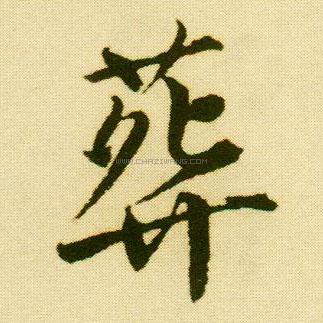 葬
WWW.CHAZIWANG.COM